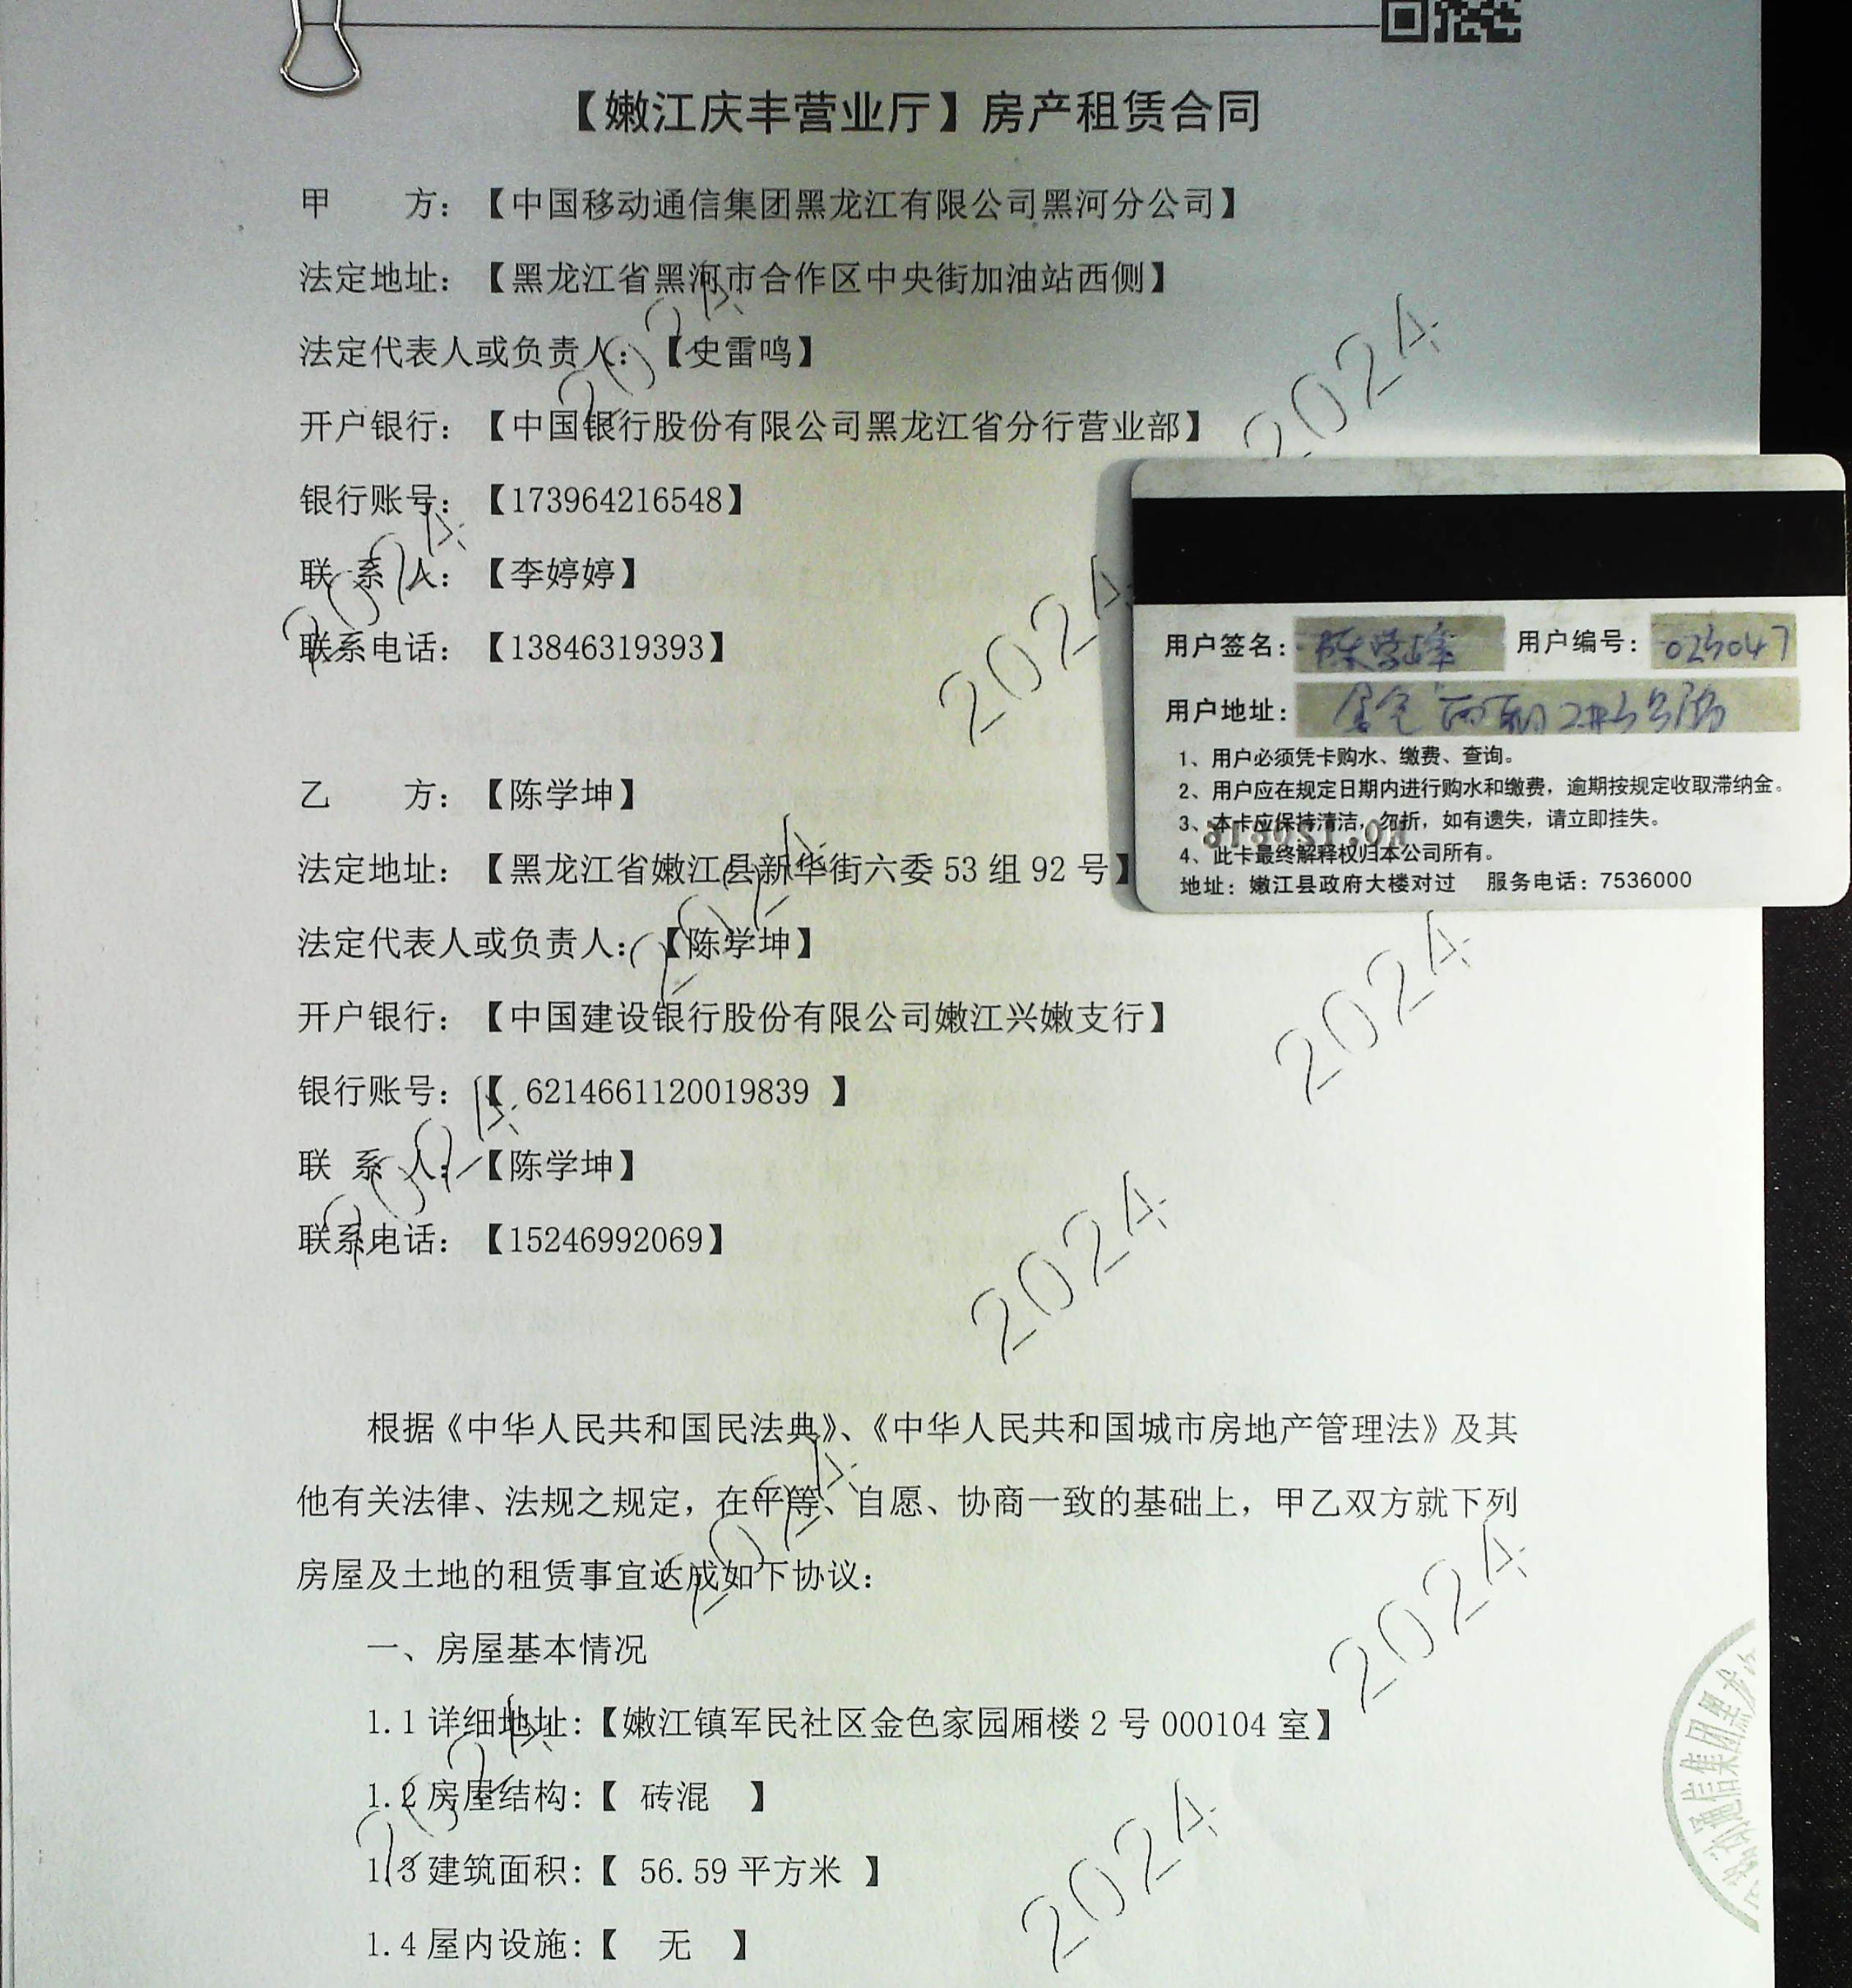 【嫩江庆丰营业厅】房产租赁合同
甲 方：【中国移动通信集团黑龙江有限公司黑河分公司】
法定地址：【黑龙江省黑河市合作区中央街加油站西侧】
法定代表人或负责人：【史雷鸣】
开户银行：【中国银行股份有限公司黑龙江省分行营业部】
银行账号：【173964216548】
联 系 人：【李婷婷】
联系电话：【13846319393】
乙 方：【陈学坤】
法定地址：【黑龙江省嫩江县新华街六委 53 组 92 号】
法定代表人或负责人：【陈学坤】
开户银行：【中国建设银行股份有限公司嫩江兴嫩支行】
银行账号：【 6214661120019839 】
联 系 人：【陈学坤】
联系电话：【15246992069】
根据《中华人民共和国民法典》、《中华人民共和国城市房地产管理法》及其
他有关法律、法规之规定，在平等、自愿、协商一致的基础上，甲乙双方就下列
房屋及土地的租赁事宜达成如下协议：
一、房屋基本情况
1.1 详细地址:【嫩江镇军民社区金色家园厢楼 2 号 000104 室】
1.2 房屋结构:【 砖混 】
1.3 建筑面积:【 56.59 平方米 】
1.4 屋内设施:【 无 】
用户签名： 用户编号：025047
用户地址：
1、用户必须凭卡购水、缴费、查询。
2、用户应在规定日期内进行购水和缴费，逾期按规定收取滞纳金。
3、本卡应保持清洁，勿折，如有遗失，请立即挂失。
4、此卡最终解释权归本公司所有。
地址：嫩江县政府大楼对过 服务电话：7536000
2024
2024
2024
2024
2024
2024
2024
2024
2024
2024
2024
2024
通信集团黑龙